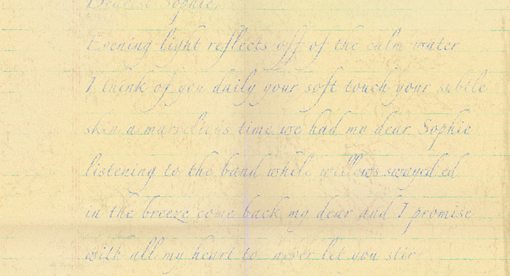 Sophie,
Evening light reflects off of the calm water
I think of you daily your soft touch your subtle
skin a marvelious time we had my dear Sophie
listening to the band while willows swayed ed
in the breeze come back my dear and I promise
with all my heart to never let you stir